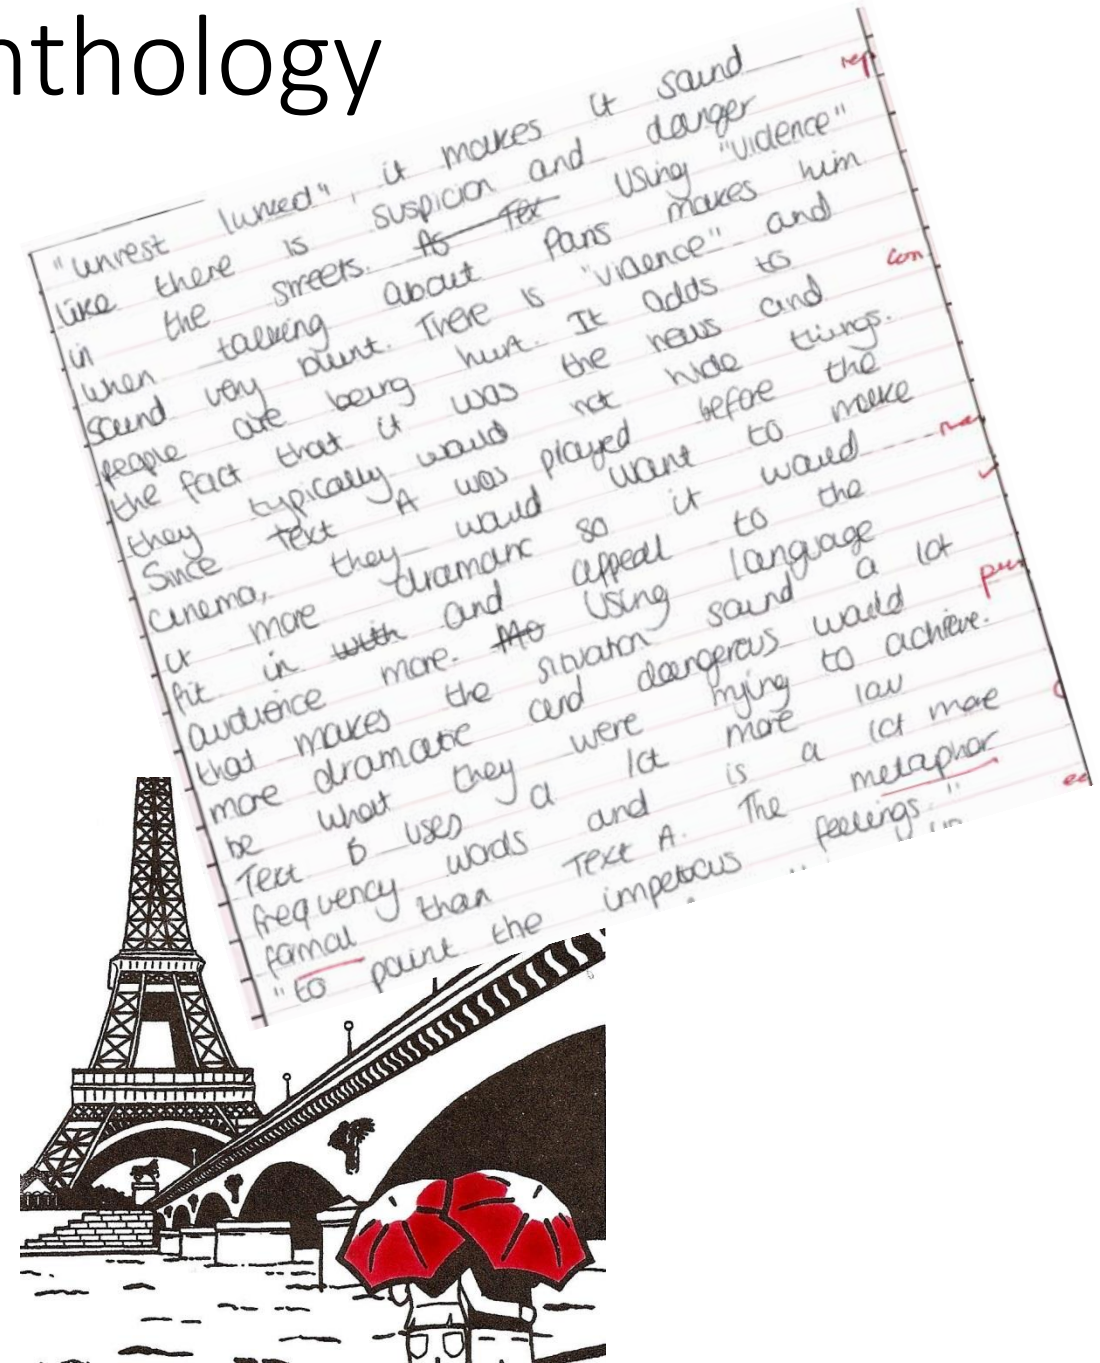 nthology
"unrest lurked", it makes it sound
like there is suspicion and danger
in the streets. As Tex Using "violence"
when talking about Paris makes him
sound very blunt. There is "violence" and
people are being hurt. It adds to
the fact that it was the news and
they typically would not hide things.
Since Text A was played before the
cinema, they would want to make
it more dramatic so it would
fit in with and appeal to the
audience more. Mo Using language
that makes the situation sound a lot
more dramatic and dangerous would
be what they were trying to achieve.
Text B uses a lot more low
frequency words and is a lot more
formal than Text A. The metaphor
"to paint the impetous feelings."